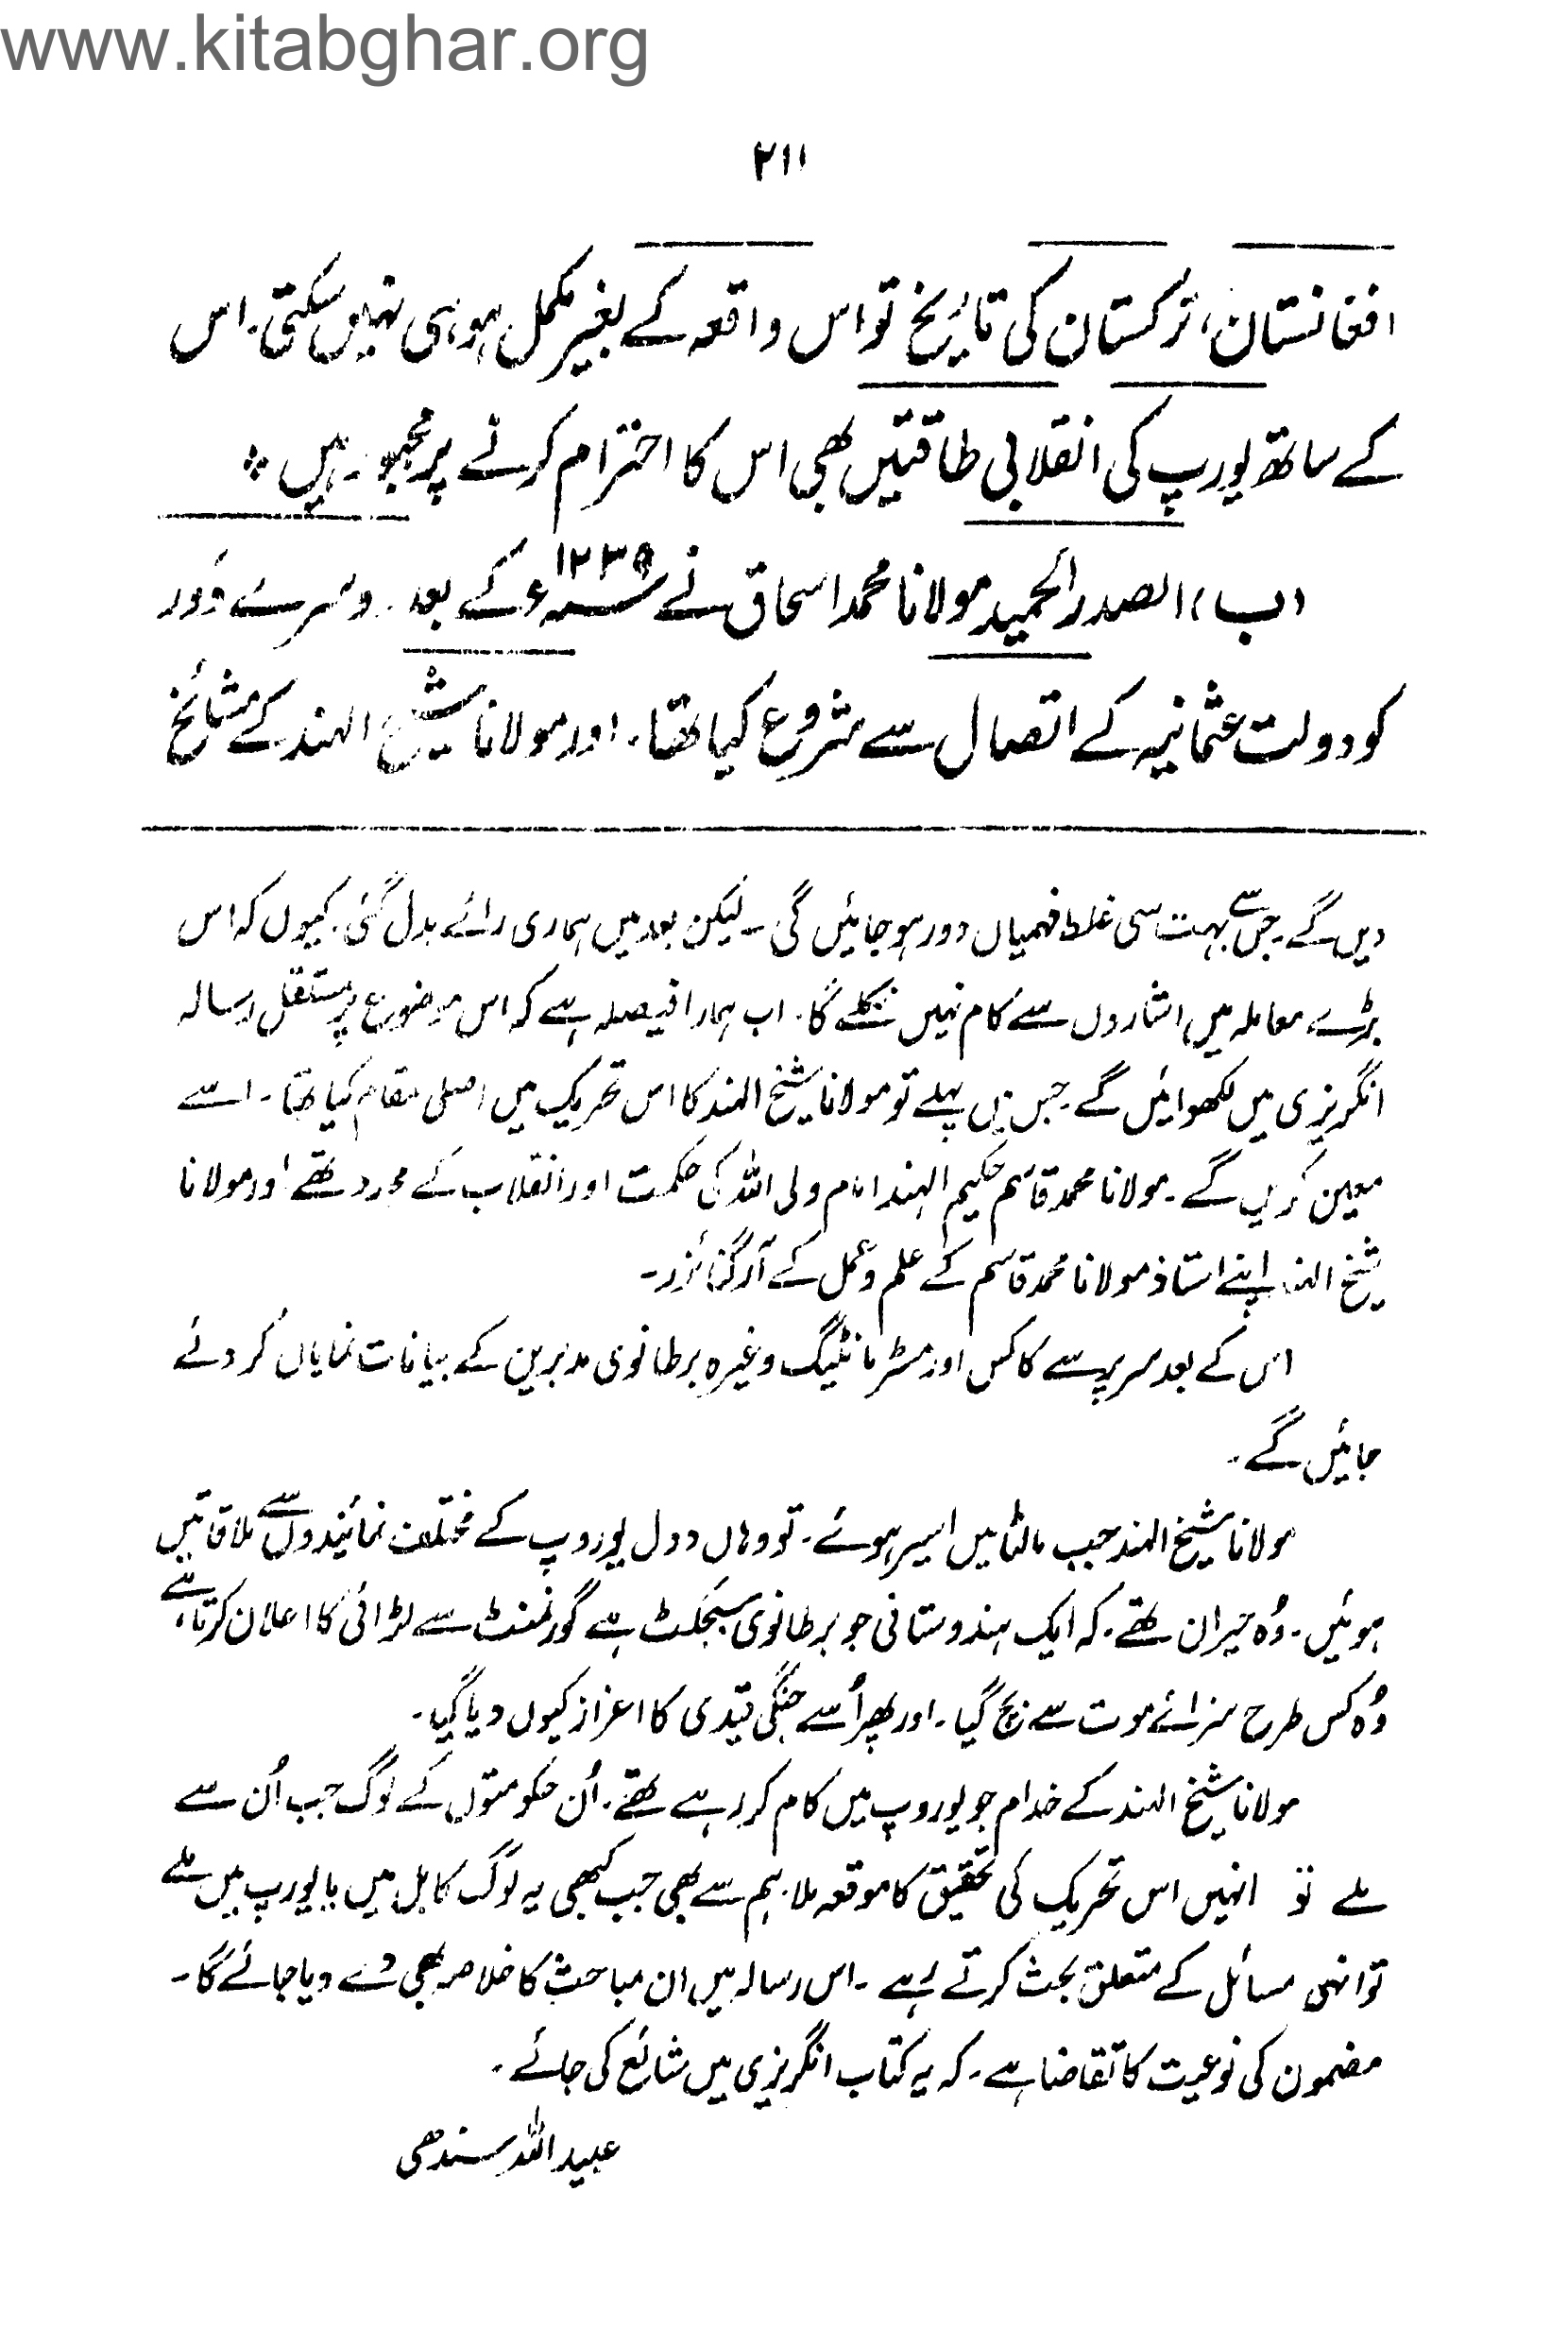 www.kitabghar.org
۲۱۱
افغانستان، ترکستان کی تاریخ تو اس واقعہ کے بغیر مکمل ہو ہی نہیں سکتی۔ اس
کے ساتھ یورپ کی انقلابی طاقتیں بھی اس کا احترام کرنے پر مجبور ہیں ؞
(ب) الصدر الحمید مولانا محمد اسحاق نے ۱۲۳۵ء کے بعد دوسرے دَور
کو دولت عثمانیہ کے اتصال سے شروع کیا تھا۔ اور مولانا شیخ الہند کے مشائخ
دیں گے۔ جس سے بہت سی غلط فہمیاں دور ہو جائیں گی۔ لیکن بعد میں ہماری رائے بدل گئی۔ کیوں کہ اس
بڑے معاملہ میں اشاروں سے کام نہیں نکلے گا۔ اب ہمارا فیصلہ ہے کہ اس موضوع پر مستقل رسالہ
انگریزی میں لکھوائیں گے۔ جس میں پہلے تو مولانا شیخ الہند کا اس تحریک میں اصلی مقام کیا تھا۔ اسے
معین کریں گے۔ مولانا محمد قاسم حکیم الہند امام ولی اللہ کی حکمت اور انقلاب کے مجدد تھے اور مولانا
شیخ الہند اپنے استاذ مولانا محمد قاسم کے علم و عمل کے آرگنائزر۔
اس کے بعد سر پرسے کاکس اور مسٹر مانٹیگ وغیرہ برطانوی مدبرین کے بیانات نمایاں کر دئے
جائیں گے۔
مولانا شیخ الہند جب مالٹا میں اسیر ہوئے۔ تو وہاں دول یوروپ کے مختلف نمائیندوں سے ملاقاتیں
ہوئیں۔ وُہ حیران تھے۔ کہ ایک ہندوستانی جو برطانوی سبجکٹ ہے گورنمنٹ سے لڑائی کا اعلان کرتا ہے،
وُہ کس طرح سزائے موت سے بچ گیا۔ اور پھر اُسے جنگی قیدی کا اعزاز کیوں دیا گیا۔
مولانا شیخ الہند کے خدام جو یوروپ میں کام کر رہے تھے۔ اُن حکومتوں کے لوگ جب اُن سے
ملے تو انہیں اس تحریک کی تحقیق کا موقعہ ملا۔ ہم سے بھی جب کبھی یہ لوگ کابل میں یا یورپ میں ملے
تو انہی مسائل کے متعلق بحث کرتے رہے۔ اس رسالہ میں ان مباحث کا خلاصہ بھی دے دیا جائے گا۔
مضمون کی نوعیت کا تقاضا ہے۔ کہ یہ کتاب انگریزی میں شائع کی جائے۔
عبیداللہ سندھی